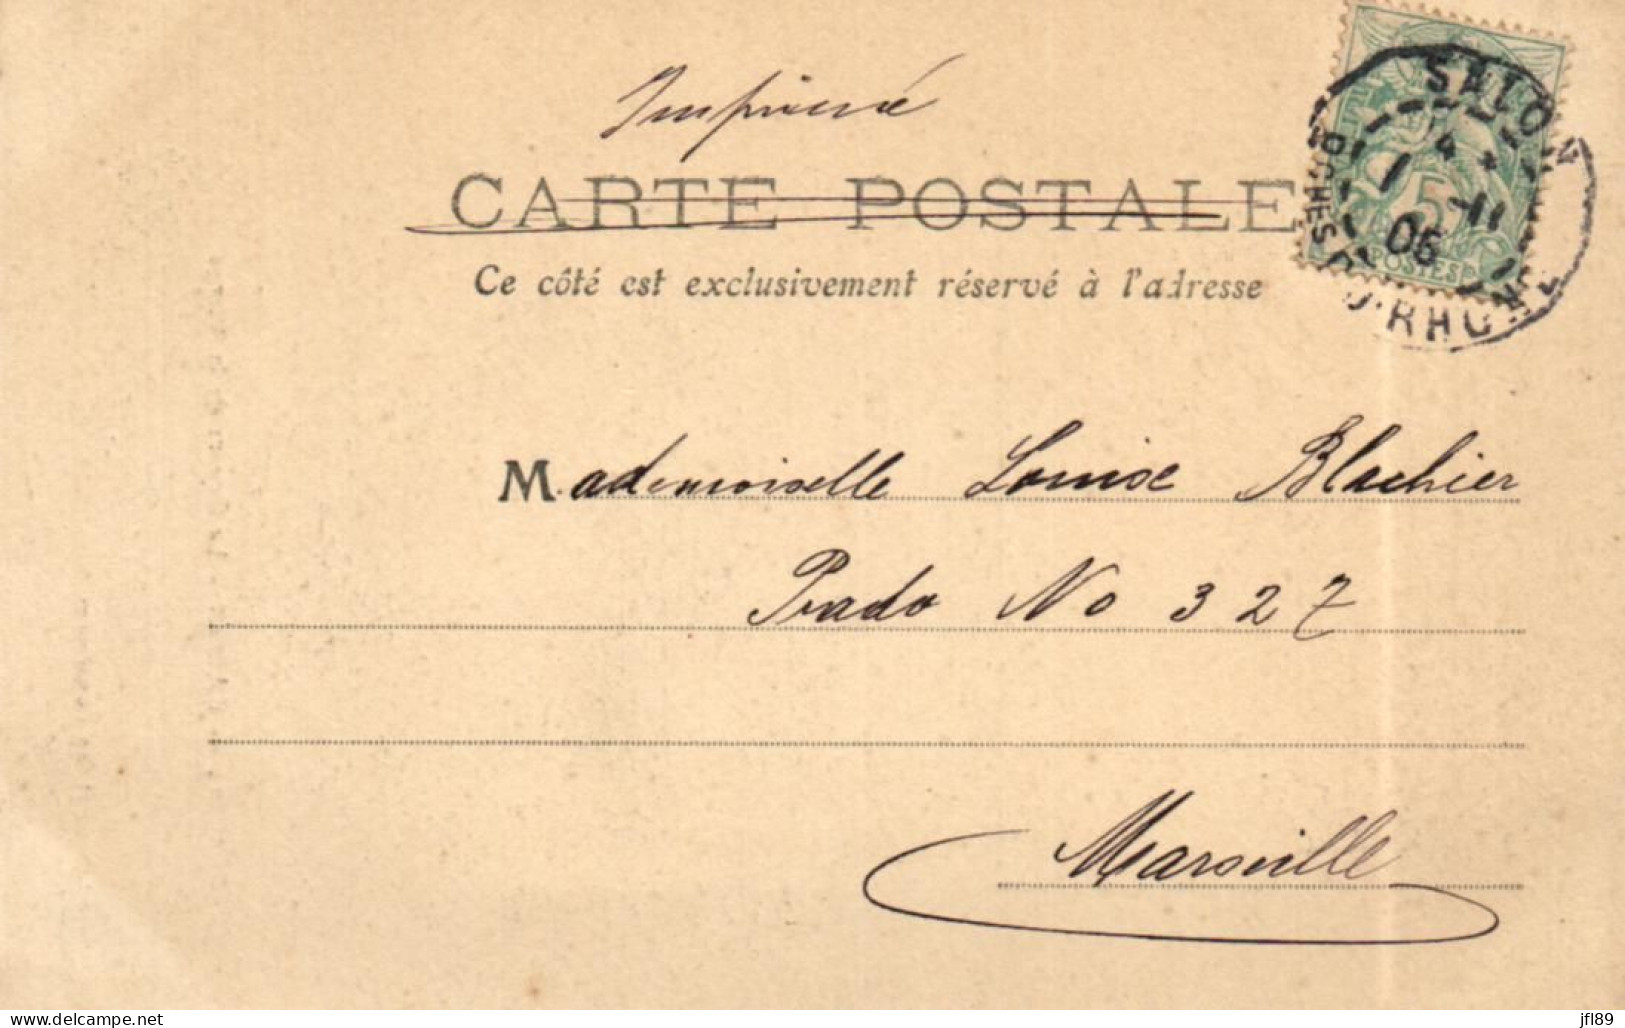 Imprimé
CARTE POSTALE
Ce côté est exclusivement réservé à l'adresse
SALON
BCHES DU RHONE
1 -11
06
5
POSTES
Mademoiselle Louise Blachier
Prado No 327
Marseille
www.delcampe.net
jfl89